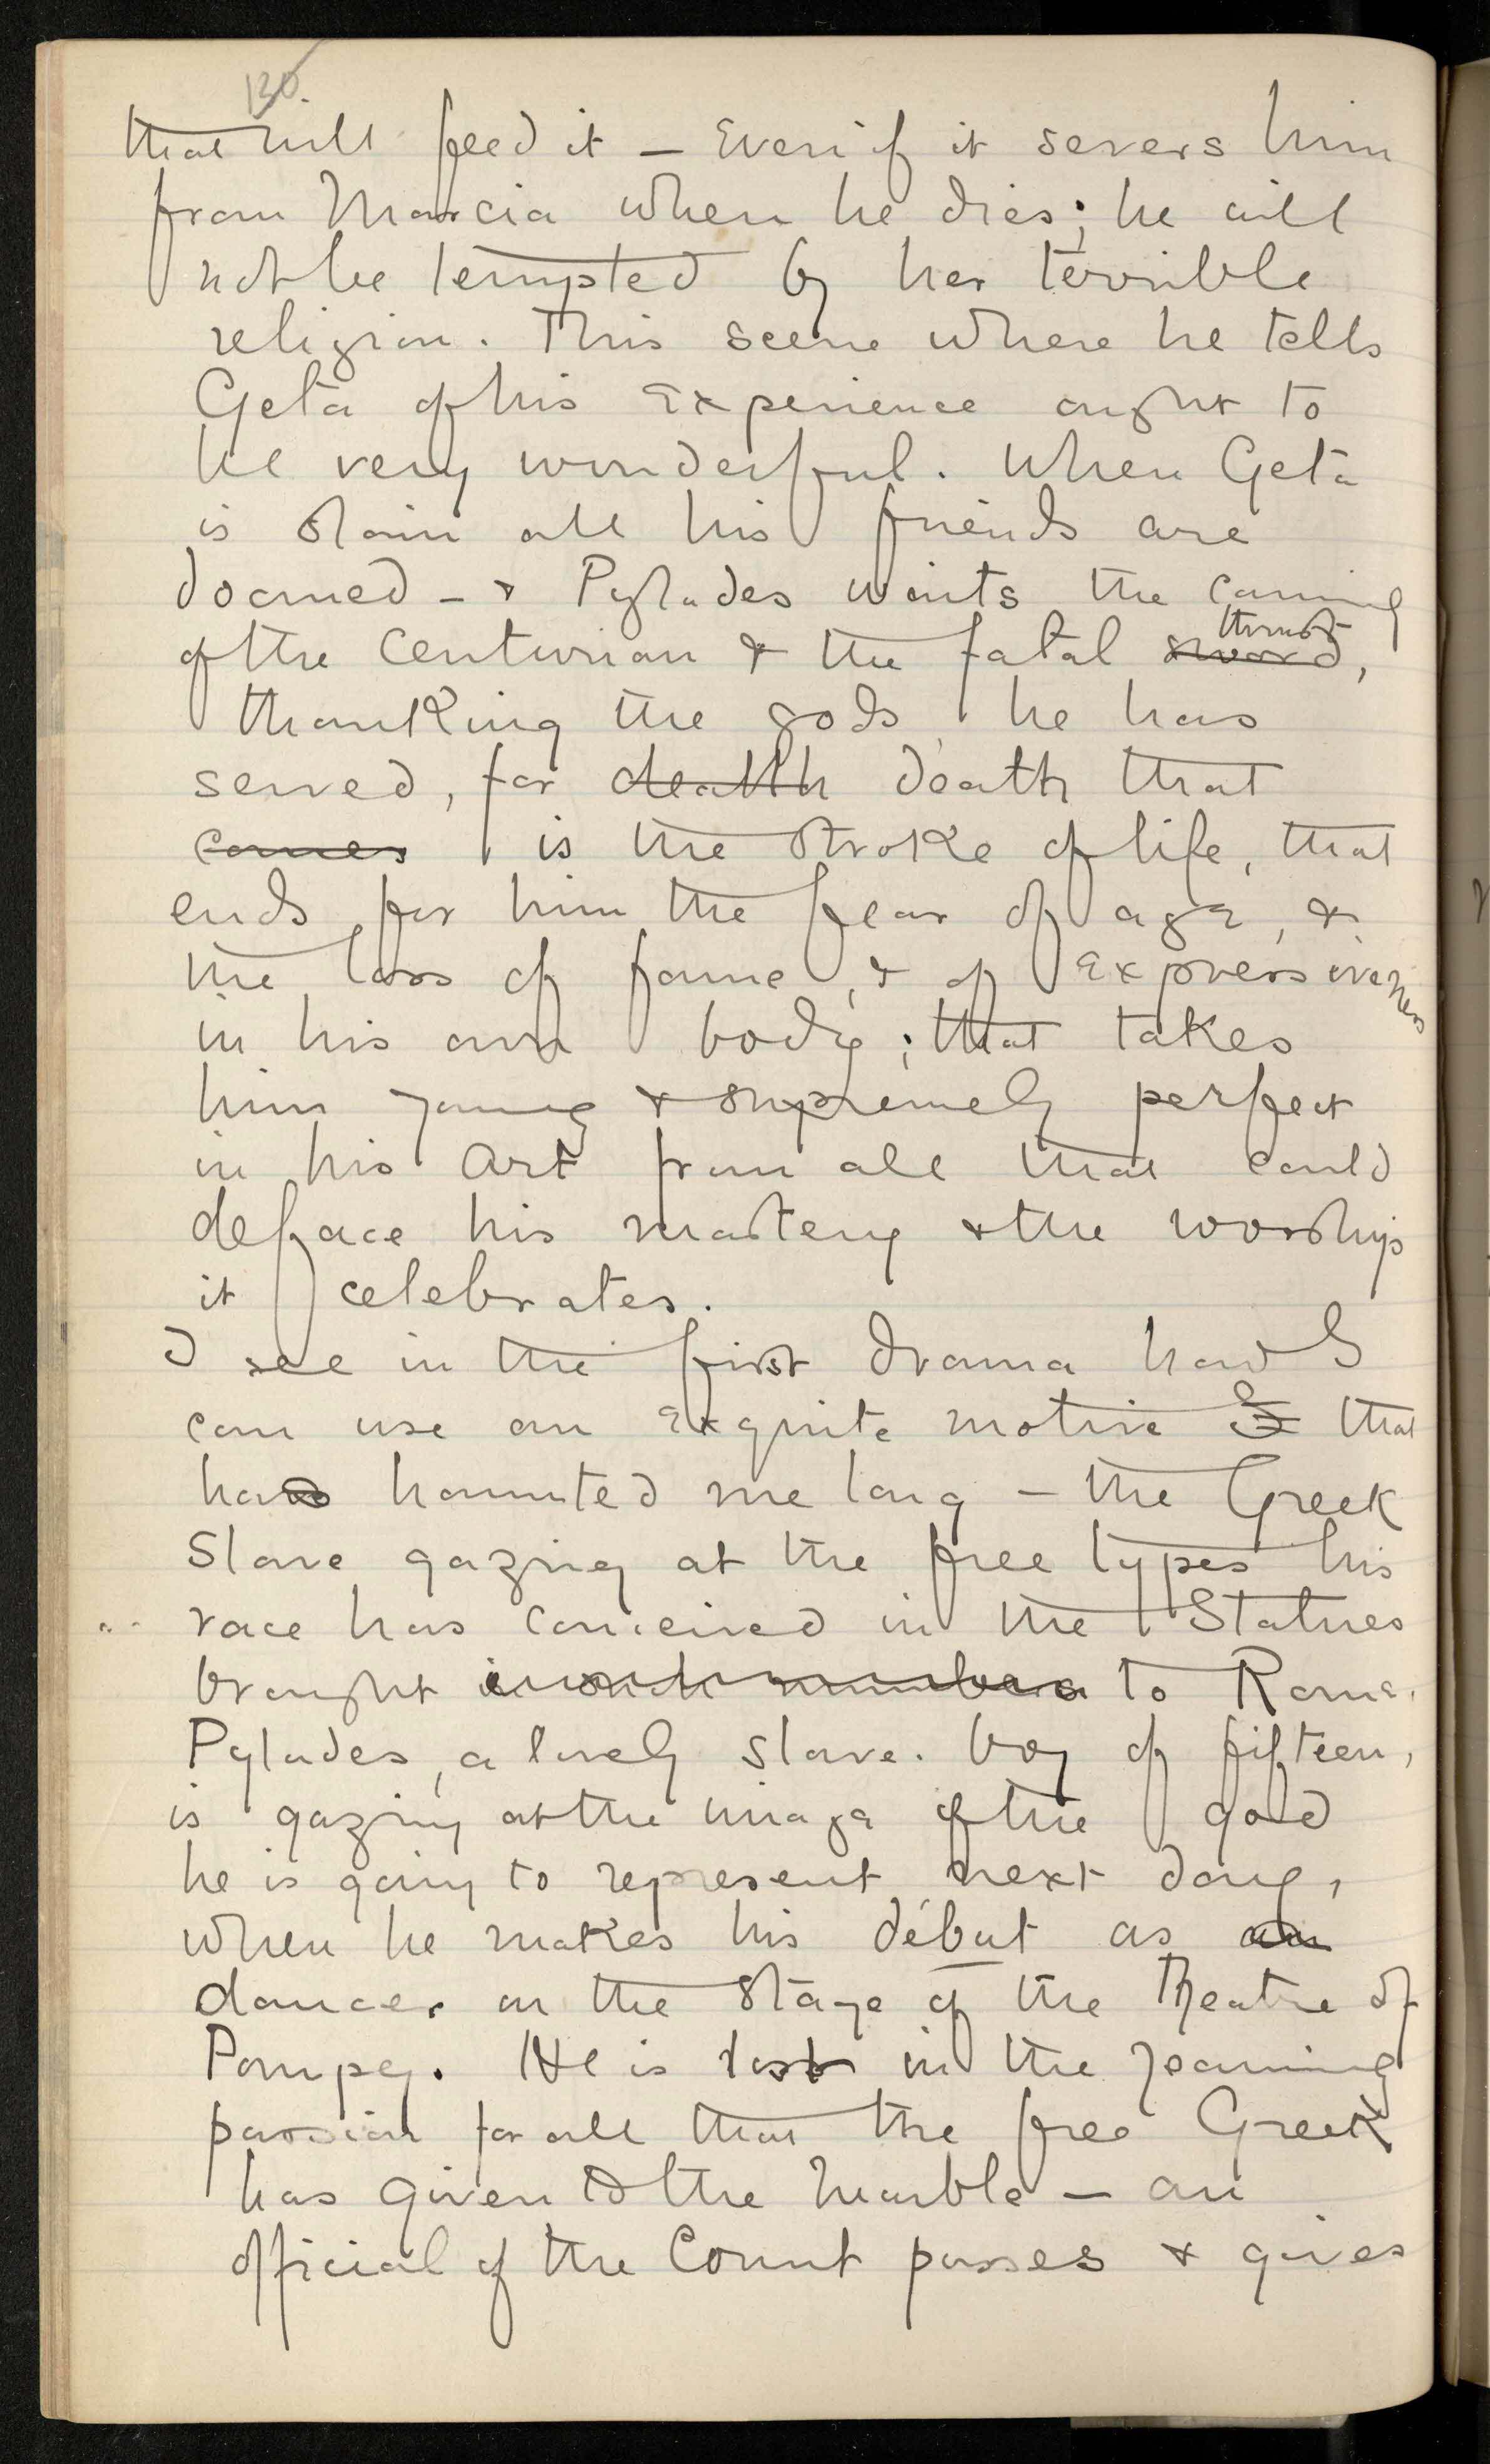 130.
that will feed it – Even if it severs him
from Marcia when he dies; he will
not be tempted by her terrible
religion. This scene where he tells
Geta of his experience ought to
be very wonderful. When Geta
is slain all his friends are
doomed – & Pylades waits the coming
of the Centurion & the fatal sword, thrust
thanking the gods, he has
served, for death death that
comes is the stroke of life, that
ends for him the fear of age, &
the loss of fame, & of expressiveness
in his own body; that takes
him young & supremely perfect
in his Art from all that could
deface his mastery & the worship
it celebrates.
I see in the first drama how I
can use an exquisite motive I that
has haunted me long – the Greek
Slave gazing at the free types his
race has conceived in the Statues
brought in such numbers to Rome.
Pylades, a lovely slave-boy of fifteen,
is gazing at the image of the god
he is going to represent next day,
when he makes his début as an
dancer on the Stage of the Theatre of
Pompey. He is lost in the yearning
passion for all that the free Greek
has given to the Marble – an
official of the Court passes & gives